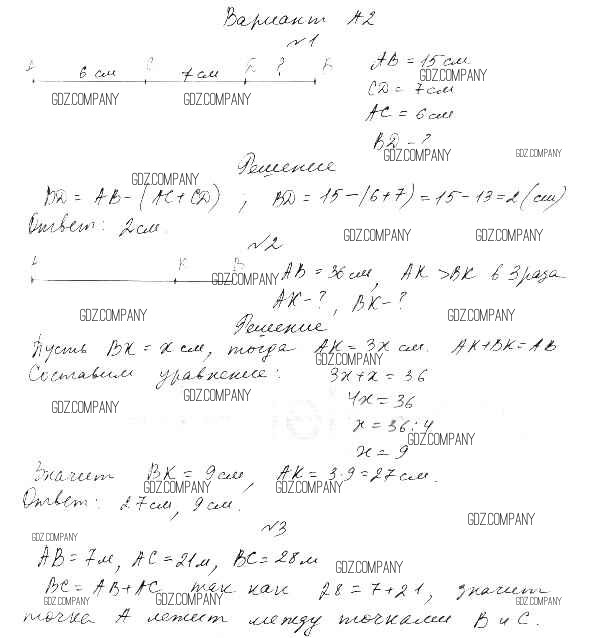 Вариант А2
№1
A 6 см C 7 см D ? B
AB = 15 см
GDZ.COMPANY GDZ.COMPANY GDZ.COMPANY
CD = 7 см
AC = 6 см
BD - ?
GDZ.COMPANY GDZ.COMPANY
Решение
GDZ.COMPANY
BD = AB - (AC + CD) ; BD = 15 - (6+7) = 15 - 13 = 2 (см)
Ответ: 2 см.
GDZ.COMPANY GDZ.COMPANY
№2
A K B
GDZ.COMPANY
AB = 36 см, AK > BK в 3 раза
AK - ?, BK - ?
GDZ.COMPANY GDZ.COMPANY
Решение
Пусть BK = x см, тогда AK = 3x см. AK + BK = AB
GDZ.COMPANY
Составим уравнение: 3x + x = 36
GDZ.COMPANY GDZ.COMPANY
4x = 36
x = 36 : 4
GDZ.COMPANY
x = 9
Значит BK = 9 см, AK = 3·9 = 27 см.
GDZ.COMPANY GDZ.COMPANY
Ответ: 27 см, 9 см.
GDZ.COMPANY
№3
GDZ.COMPANY
AB = 7 м, AC = 21 м, BC = 28 м
GDZ.COMPANY
BC = AB + AC так как 28 = 7 + 21, значит
GDZ.COMPANY GDZ.COMPANY GDZ.COMPANY GDZ.COMPANY
точка A лежит между точками B и C.